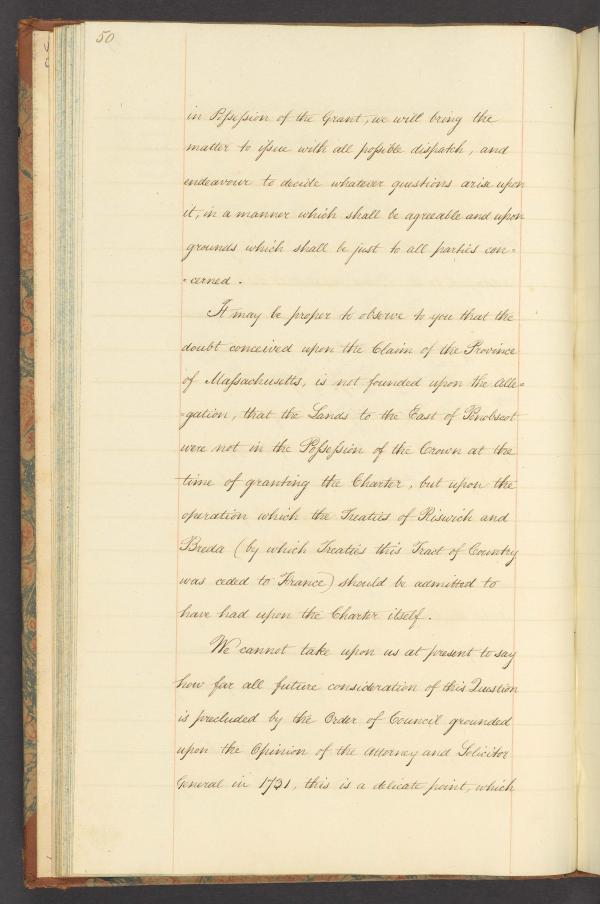 50
in Possession of the Grant, we will bring the
matter to issue with all possible dispatch, and
endeavour to decide whatever questions arise upon
it, in a manner which shall be agreeable and upon
grounds which shall be just to all parties con=
=cerned.
It may be proper to observe to you that the
doubt conceived upon the Claim of the Province
of Massachusetts, is not founded upon the Alle=
=gation, that the Lands to the East of Penobscot
were not in the Possession of the Crown at the
time of granting the Charter, but upon the
operation which the Treaties of Riswich and
Breda (by which Treaties this Tract of Country
was ceded to France) should be admitted to
have had upon the Charter itself.
We cannot take upon us at present to say
how far all future consideration of this Question
is precluded by the Order of Council grounded
upon the Opinion of the Attorney and Solicitor
General in 1731, this is a delicate point, which